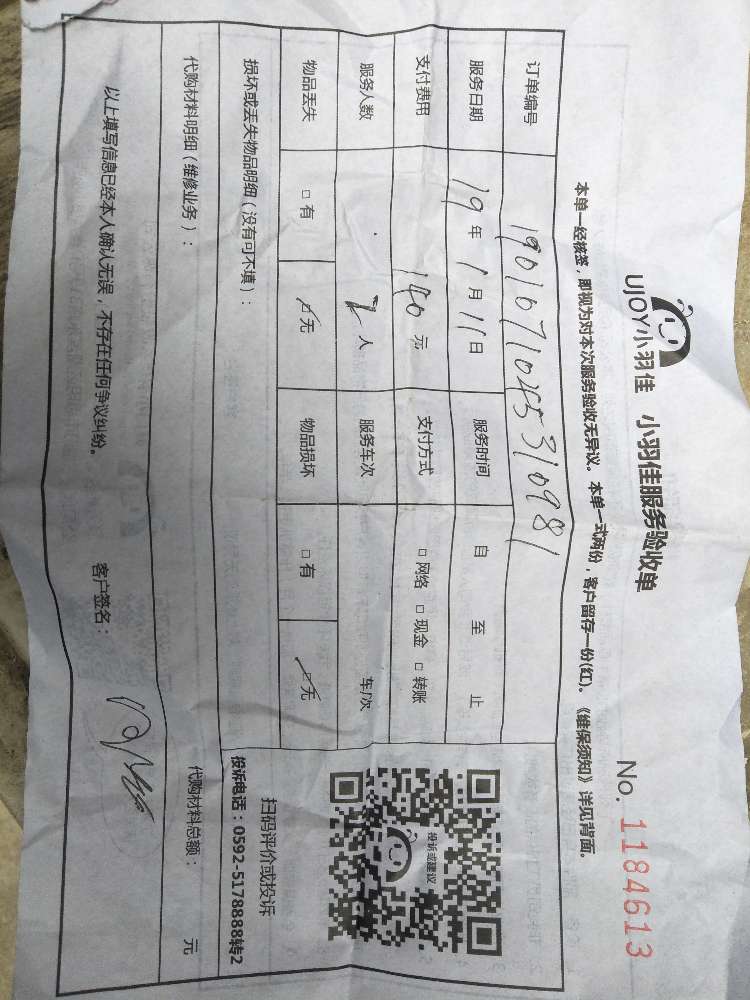 UJOY小羽佳 小羽佳服务验收单
No. 1184613
本单一经核签，即视为对本次服务验收无异议。本单一式两份，客户留存一份(红)。《维保须知》详见背面。
订单编号
服务日期 19年1月11日 服务时间 自 至 止
支付费用 140元 支付方式 □网络 □现金 □转账
服务人数 2人 服务车次 车/次
物品丢失 □有 □无 物品损坏 □有 □无
投诉或建议
扫码评价或投诉
投诉电话：0592-5178888转2
损坏或丢失物品明细（没有可不填）：
代购材料明细（维修业务）： 代购材料总额： 元
以上填写信息已经本人确认无误，不存在任何争议纠纷。 客户签名：